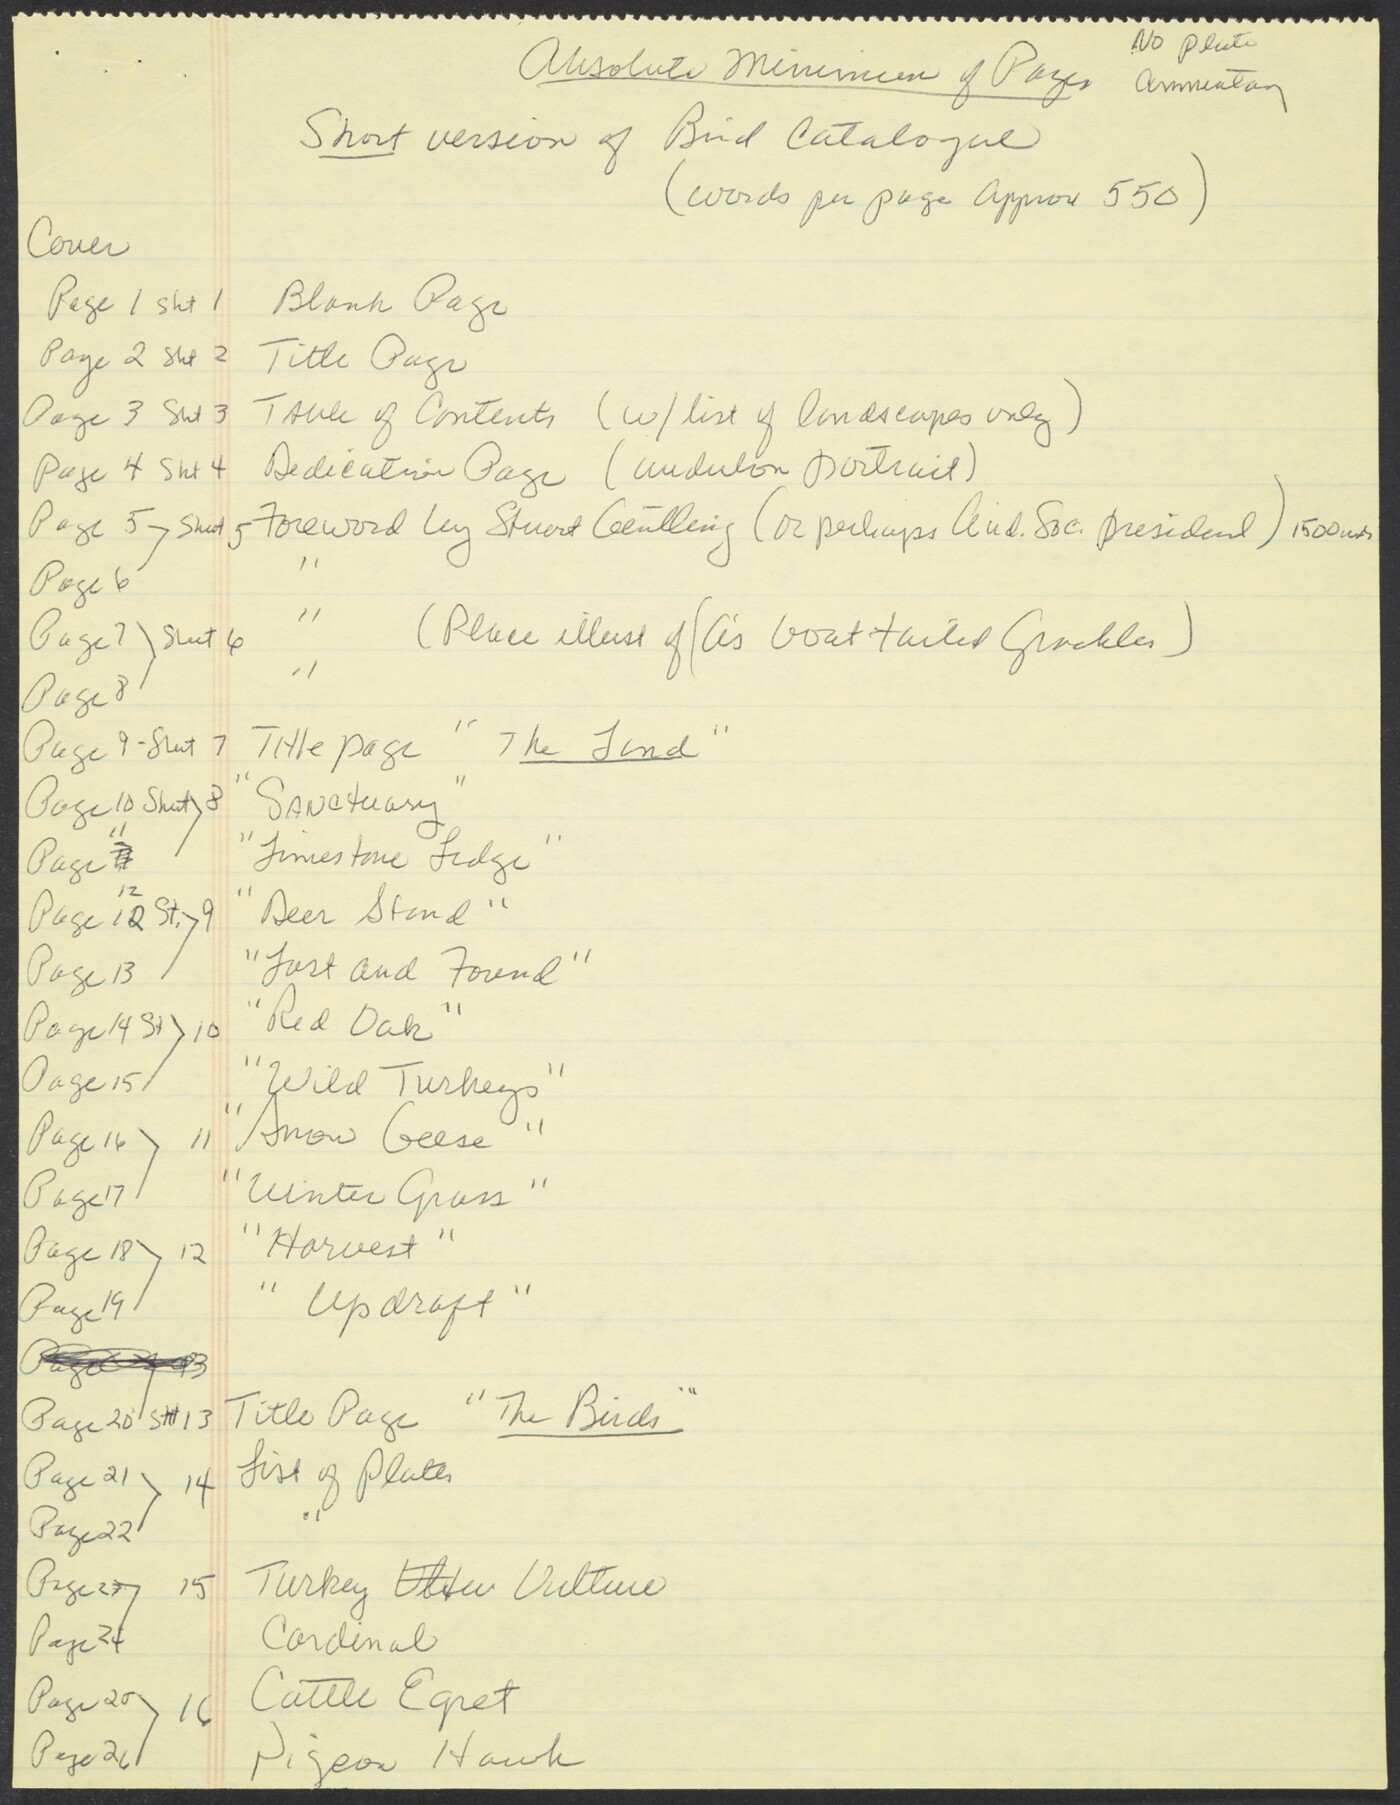 Absolute Minimum of Pages
No plate
Commentary
Short version of Bird Catalogue
(words per page approx 550)
Cover
Page 1 sht 1 Blank Page
Page 2 Sht 2 Title Page
Page 3 Sht 3 Table of Contents (w/ list of landscapes only)
Page 4 Sht 4 Dedication Page (audubon portrait)
Page 5 Sheet 5 Foreword by Stuart Gentling (or perhaps Aud. Soc. president) 1500 wds
Page 6 "
Page 7 Sheet 6 " (Place illust of A's boat tailed Grackles)
Page 8 "
Page 9 - Sheet 7 Title page "The Land"
Page 10 Sheet 8 "Sanctuary"
Page 11 "Limestone Ledge"
Page 12 St. 9 "Deer Stand"
Page 13 "Lost and Found"
Page 14 St 10 "Red Oak"
Page 15 "Wild Turkeys"
Page 16 11 "Snow Geese"
Page 17 "Winter Grass"
Page 18 12 "Harvest"
Page 19 "Updraft"
Page 13
Page 20 Sht 13 Title Page "The Birds"
Page 21 14 List of plates
Page 22 "
Page 23 15 Turkey Vulture
Page 24 Cardinal
Page 25 16 Cattle Egret
Page 26 Pigeon Hawk